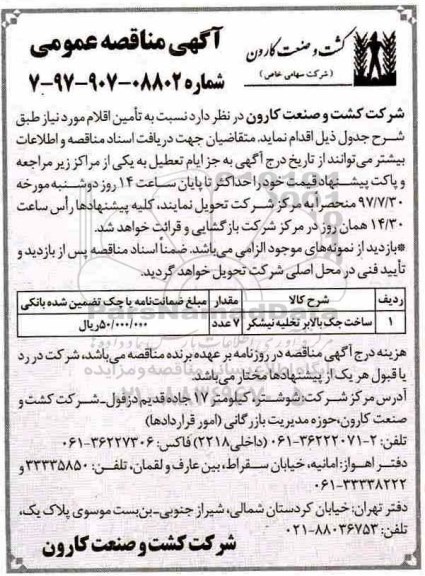 کشت و صنعت کارون
( شرکت سهامی خاص )
آگهی مناقصه عمومی
شماره ۰۸۸۰۲-۹۰۷-۹۷-۷
شرکت کشت و صنعت کارون در نظر دارد نسبت به تأمین اقلام مورد نیاز طبق
شرح جدول ذیل اقدام نماید. متقاضیان جهت دریافت اسناد مناقصه و اطلاعات
بیشتر می‌توانند از تاریخ درج آگهی به جز ایام تعطیل به یکی از مراکز زیر مراجعه
و پاکت پیشنهاد قیمت خود را حداکثر تا پایان ساعت ۱۴ روز دوشنبه مورخه
۹۷/۷/۳۰ منحصراً به مرکز شرکت تحویل نمایند، کلیه پیشنهادها رأس ساعت
۱۴/۳۰ همان روز در مرکز شرکت بازگشایی و قرائت خواهد شد.
*بازدید از نمونه‌های موجود الزامی می‌باشد. ضمناً اسناد مناقصه پس از بازدید و
تأیید فنی در محل اصلی شرکت تحویل خواهد گردید.
ردیف شرح کالا مقدار مبلغ ضمانت‌نامه یا چک تضمین شده بانکی
۱ ساخت جک بالابر تخلیه نیشکر ۷ عدد ۵۰/۰۰۰/۰۰۰ ریال
هزینه درج آگهی مناقصه در روزنامه بر عهده برنده مناقصه می‌باشد، شرکت در رد
یا قبول هر یک از پیشنهادها مختار می‌باشد.
آدرس مرکز شرکت: شوشتر، کیلومتر ۱۷ جاده قدیم دزفول_شرکت کشت و
صنعت کارون، حوزه مدیریت بازرگانی (امور قراردادها)
تلفن: ۲-۳۶۲۲۲۰۷۱-۰۶۱ (داخلی ۲۲۱۸) فاکس: ۳۶۲۲۷۳۰۶-۰۶۱
دفتر اهواز: امانیه، خیابان سقراط، بین عارف و لقمان، تلفن: ۳۳۳۳۵۸۵۰ و
۳۳۳۳۸۲۲۲-۰۶۱
دفتر تهران: خیابان کردستان شمالی، شیراز جنوبی_بن‌بست موسوی پلاک یک،
تلفن: ۸۸۰۳۶۷۵۳-۰۲۱
شرکت کشت و صنعت کارون